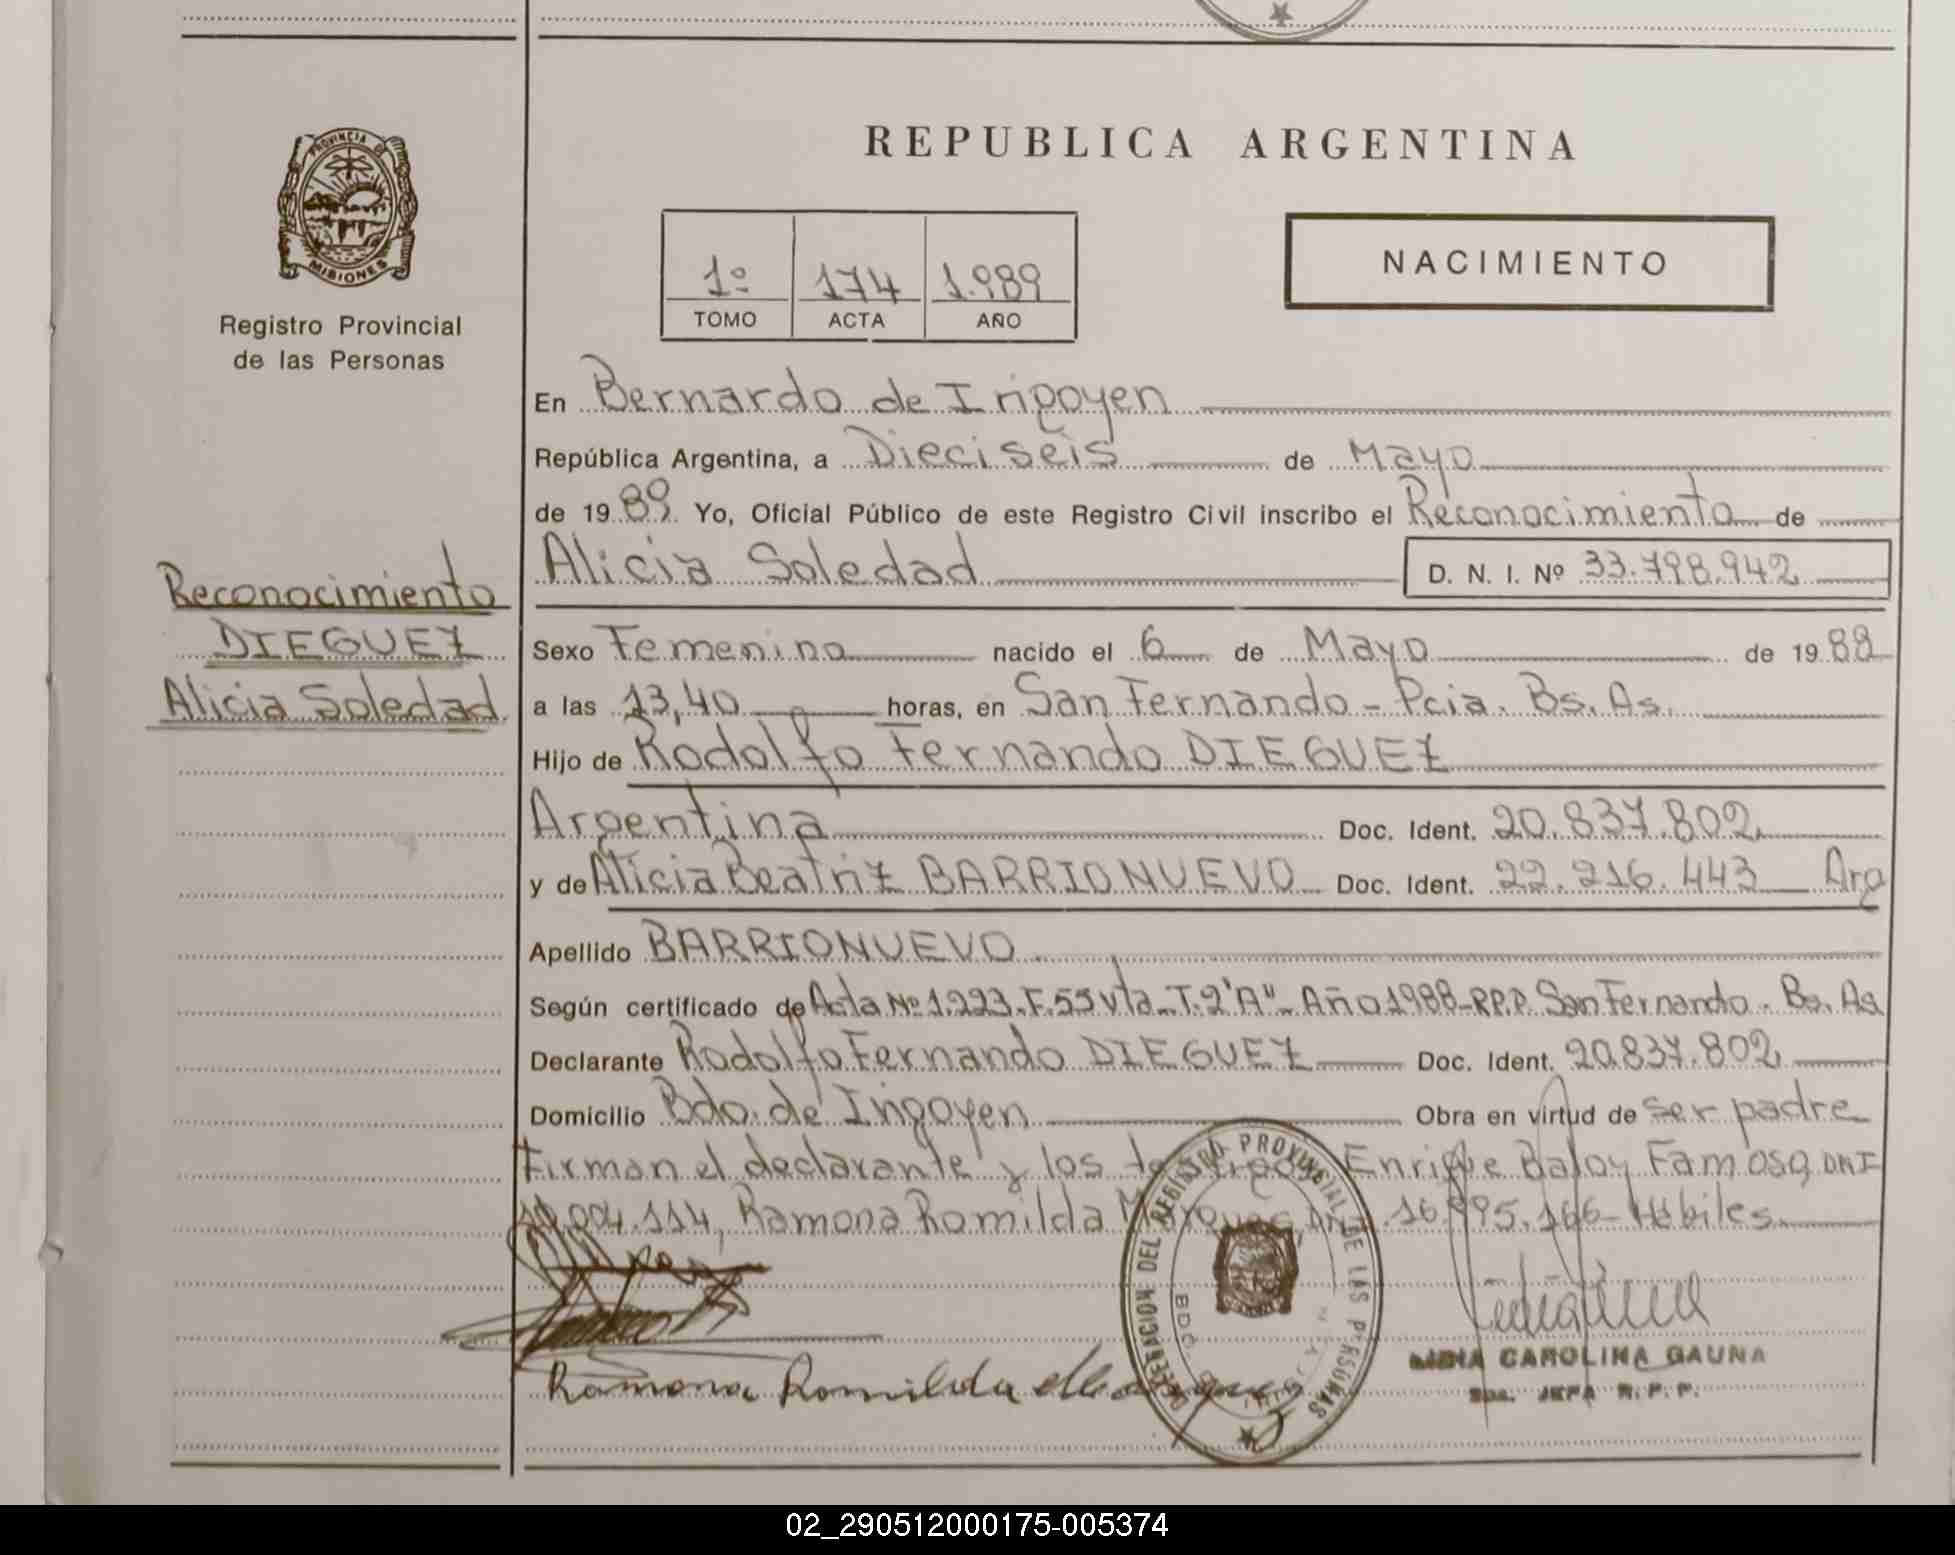 PROVINCIA DE
MISIONES
Registro Provincial
de las Personas
REPUBLICA ARGENTINA
1º 174 1.989
TOMO ACTA AÑO
NACIMIENTO
En Bernardo de Irigoyen
República Argentina, a Dieciseis de Mayo
de 19 89 Yo, Oficial Público de este Registro Civil inscribo el Reconocimiento de
Alicia Soledad D. N. I. Nº 33.798.942
Reconocimiento
DIEGUEZ
Alicia Soledad
Sexo Femenino nacido el 6 de Mayo de 19 88
a las 13,40 horas, en San Fernando - Pcia. Bs. As.
Hijo de Rodolfo Fernando DIEGUEZ
Argentina Doc. Ident. 20.837.802
y de Alicia Beatriz BARRIONUEVO Doc. Ident. 22.216.443 Arg
Apellido BARRIONUEVO
Según certificado de Acta Nº 1.223-F.55 vta-T.2"A"-Año 1988-R.P.P. San Fernando - Bs. As
Declarante Rodolfo Fernando DIEGUEZ Doc. Ident. 20.837.802
Domicilio Bdo. de Irigoyen Obra en virtud de ser padre
Firman el declarante y los testigos Enrique Famoso, DNI
.004.114, Ramona Romilda Marques, DNI. 16. 95.166- Hábiles.
Ramona Romilda Marques
DELEGACION DEL REGISTRO PROVINCIAL DE LAS PERSONAS
BDO
LIDIA CAROLINA GAUNA
Sba. JEFA R. P. P.
02_290512000175-005374